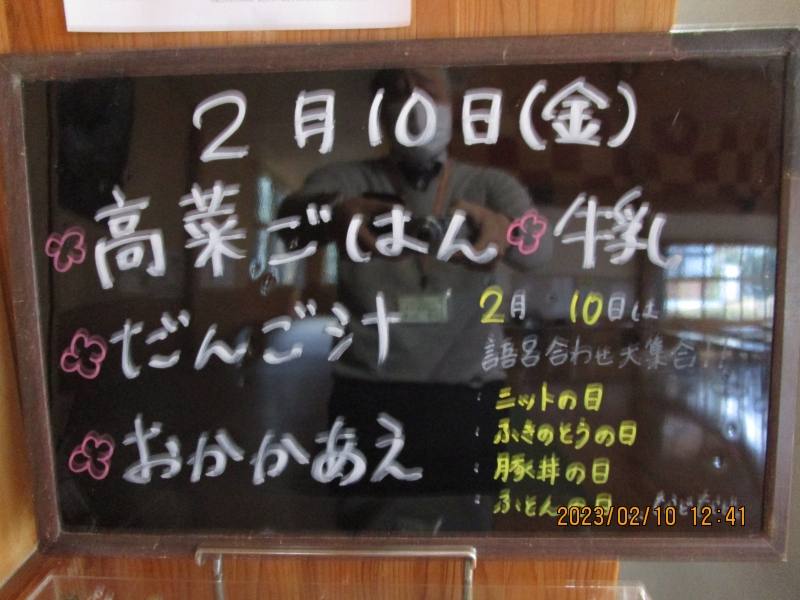 2月10日(金)
高菜ごはん 牛乳
だんご汁
おかかあえ
2月 10日は
語呂合わせ大集合!!
・ニットの日
・ふきのとうの日
・豚丼の日
・ふとんの日
2023/02/10 12:41